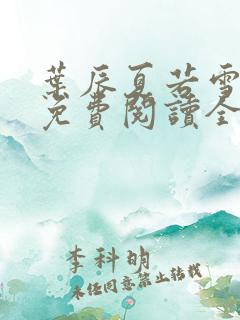 葉辰夏若雪
免費閱讀全
李科明
未經同意禁止轉載